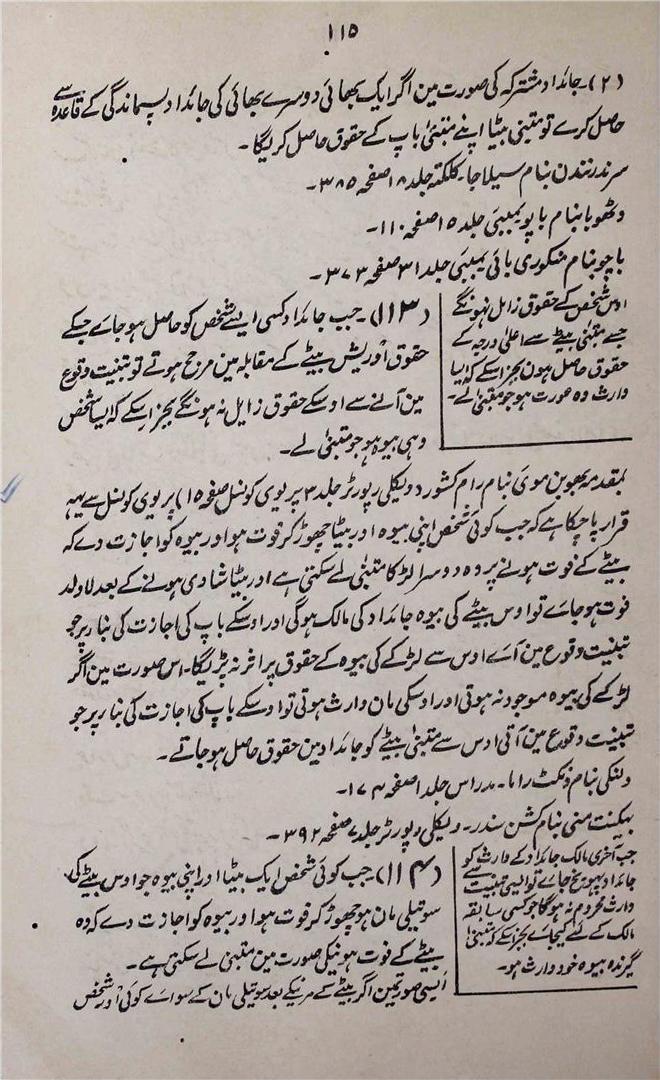 ۱۱۵
(۲)۔ جائداد مشترکہ کی صورت مین اگر ایک بھائی دوسرے بھائی کی جائداد پسماندگی کے قاعدہ سے
حاصل کرے تو متبنیٰ بیٹا اپنے متبنیٰ باپ کے حقوق حاصل کرلیگا۔
سرندرنندن بنام سیلاجا۔ کلکتہ جلد ۱۸ صفحہ ۳۸۵۔
وٹھوبا بنام باپو بمبئی جلد ۱۵ صفحہ ۱۱۰۔
باچو بنام منکوری بائی بمبئی جلد ۳۱ صفحہ ۳۷۳۔
اوس شخص کے حقوق زایل نہونگے
جسے متبنیٰ بیٹے سے اعلیٰ درجہ کے
حقوق حاصل ہون بجز اسکے کہ ایسا
وارث وہ عورت ہو جو متبنیٰ لے۔
(۱۱۳)۔ جب جائداد کسی ایسے شخص کو حاصل ہو جاے جسکے
حقوق اَوریش بیٹے کے مقابلہ مین مرجح ہوتے تو تبنیت وقوع
مین آنے سے اوسکے حقوق زایل نہ ہونگے بجز اسکے کہ ایسا شخص
وہی بیوہ ہو جو متبنیٰ لے۔
بمقدمہ بھوبن موئی بنام رام کشور (ویکلی رپورٹر جلد ۳ پریوی کونسل صفحہ ۱۵) پریوی کونسل سے یہہ
قرار پا چکا ہے کہ جب کوئی شخص اپنی بیوہ اور بیٹا چھوڑ کر فوت ہو اور بیوہ کو اجازت دے کہ
بیٹے کے فوت ہونے پر وہ دوسرا لڑکا متبنیٰ لے سکتی ہے اور بیٹا شادی ہونے کے بعد لاولد
فوت ہو جاے تو اوس بیٹے کی بیوہ جائداد کی مالک ہوگی اور اوسکے باپ کی اجازت کی بنا پر جو
تبنیت وقوع مین آے اوس سے لڑکے کی بیوہ کے حقوق پر اثر نہ پڑیگا۔ اس صورت مین اگر
لڑکے کی بیوہ موجود نہ ہوتی اور اوسکی مان وارث ہوتی تو اوسکے باپ کی اجازت کی بنا پر جو
تبنیت وقوع مین آتی اوس سے متبنیٰ بیٹے کو جائداد مین حقوق حاصل ہو جاتے۔
ولنکی بنام ونکٹ راما۔ مدراس جلد ۱ صفحہ ۱۷۴۔
بیکنٹ منی بنام کشن سندر۔ ویکلی رپورٹر جلد ۷ صفحہ ۳۹۲۔
جب آخری مالک جائداد کے وارث کو
جائداد پہونچ جاے تو ایسی تبنیت سے
وارث محروم نہ ہوگا جو کسی سابقہ
مالک کے لئے کیجاے بجز اسکے کہ متبنیٰ
گیرندہ بیوہ خود وارث ہو۔
(۱۱۴)۔ جب کوئی شخص ایک بیٹا اور اپنی بیوہ جو اوس بیٹے کی
سوتیلی مان ہو چھوڑ کر فوت ہو اور بیوہ کو اجازت دے کہ وہ
بیٹے کے فوت ہونیکی صورت مین متبنیٰ لے سکتی ہے۔
اَیسی صورتمین اگر بیٹے کے مرنیکے بعد سوتیلی مان کے سواے کوئی اَور شخص